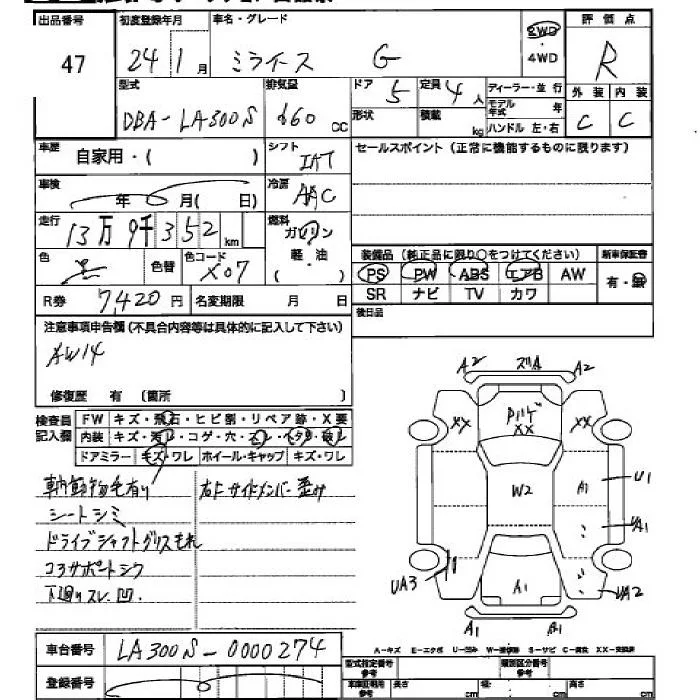 出品番号 初度登録年月 車名・グレード 2WD 評価点
47 24年 1月 ミライース G 4WD R
型式 排気量 ドア 5 定員 4人 ディーラー・並行 外装 内装
DBA-LA300S 660cc 形状 積載 kg モデル年式 年 ハンドル 左・右 C C
車歴 自家用・( ) シフト IAT セールスポイント (正常に機能するものに限ります)
車検 年 月( 日) 冷房 AAC
走行 13万9千352km 燃料 ガソリン
色 色替 色コード X07 軽・油 装備品 (純正品に限り○をつけてください) 新車保証書
PS PW ABS エアB AW 有・無
R券 7,420円 名変期限 月 日 SR ナビ TV カワ
注意事項申告欄 (不具合内容等は具体的に記入して下さい) 後日品
AW14
修復歴 有 (箇所
検査員 FW キズ・飛石・ヒビ割・リペア跡・X要
記入欄 内装 キズ・ コゲ・穴・
ドアミラー キズ・ワレ ホイール・キャップ キズ・ワレ
シートシミ
ドライブシャフトグリスもれ
コアサポートシワ
下廻りスレ、凹.
右F サイドメンバー 歪み
A2 ズレA A2
XX XX XX
W2 A1 U1
UA1
UA3 A1 UA2
A1
車台番号 LA300S-0000274
登録番号
A-キズ E-エクボ U-凹み S-サビ C-腐食 XX-交換済
型式指定番号 参考 類別区分番号 参考
長さ cm 幅 cm 高さ cm